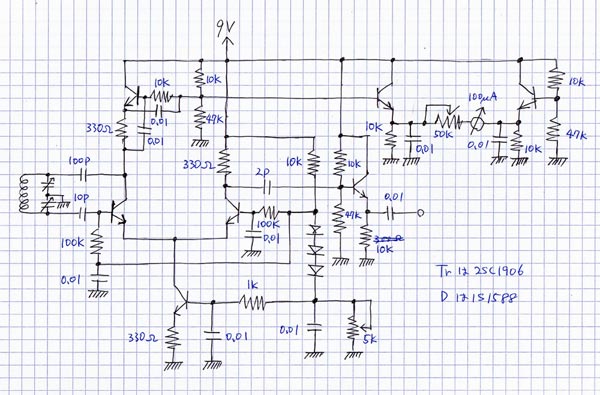 9V
10K
10K
0.01
47K
330Ω
0.01
10K
0.01
50K
100μA
0.01
10K
10K
47K
100P
10P
330Ω
2P
10K
10K
0.01
100K
0.01
100K
0.01
47K
300Ω
10K
1K
330Ω
0.01
0.01
5K
Tr は 2SC1906
D は 1S1588